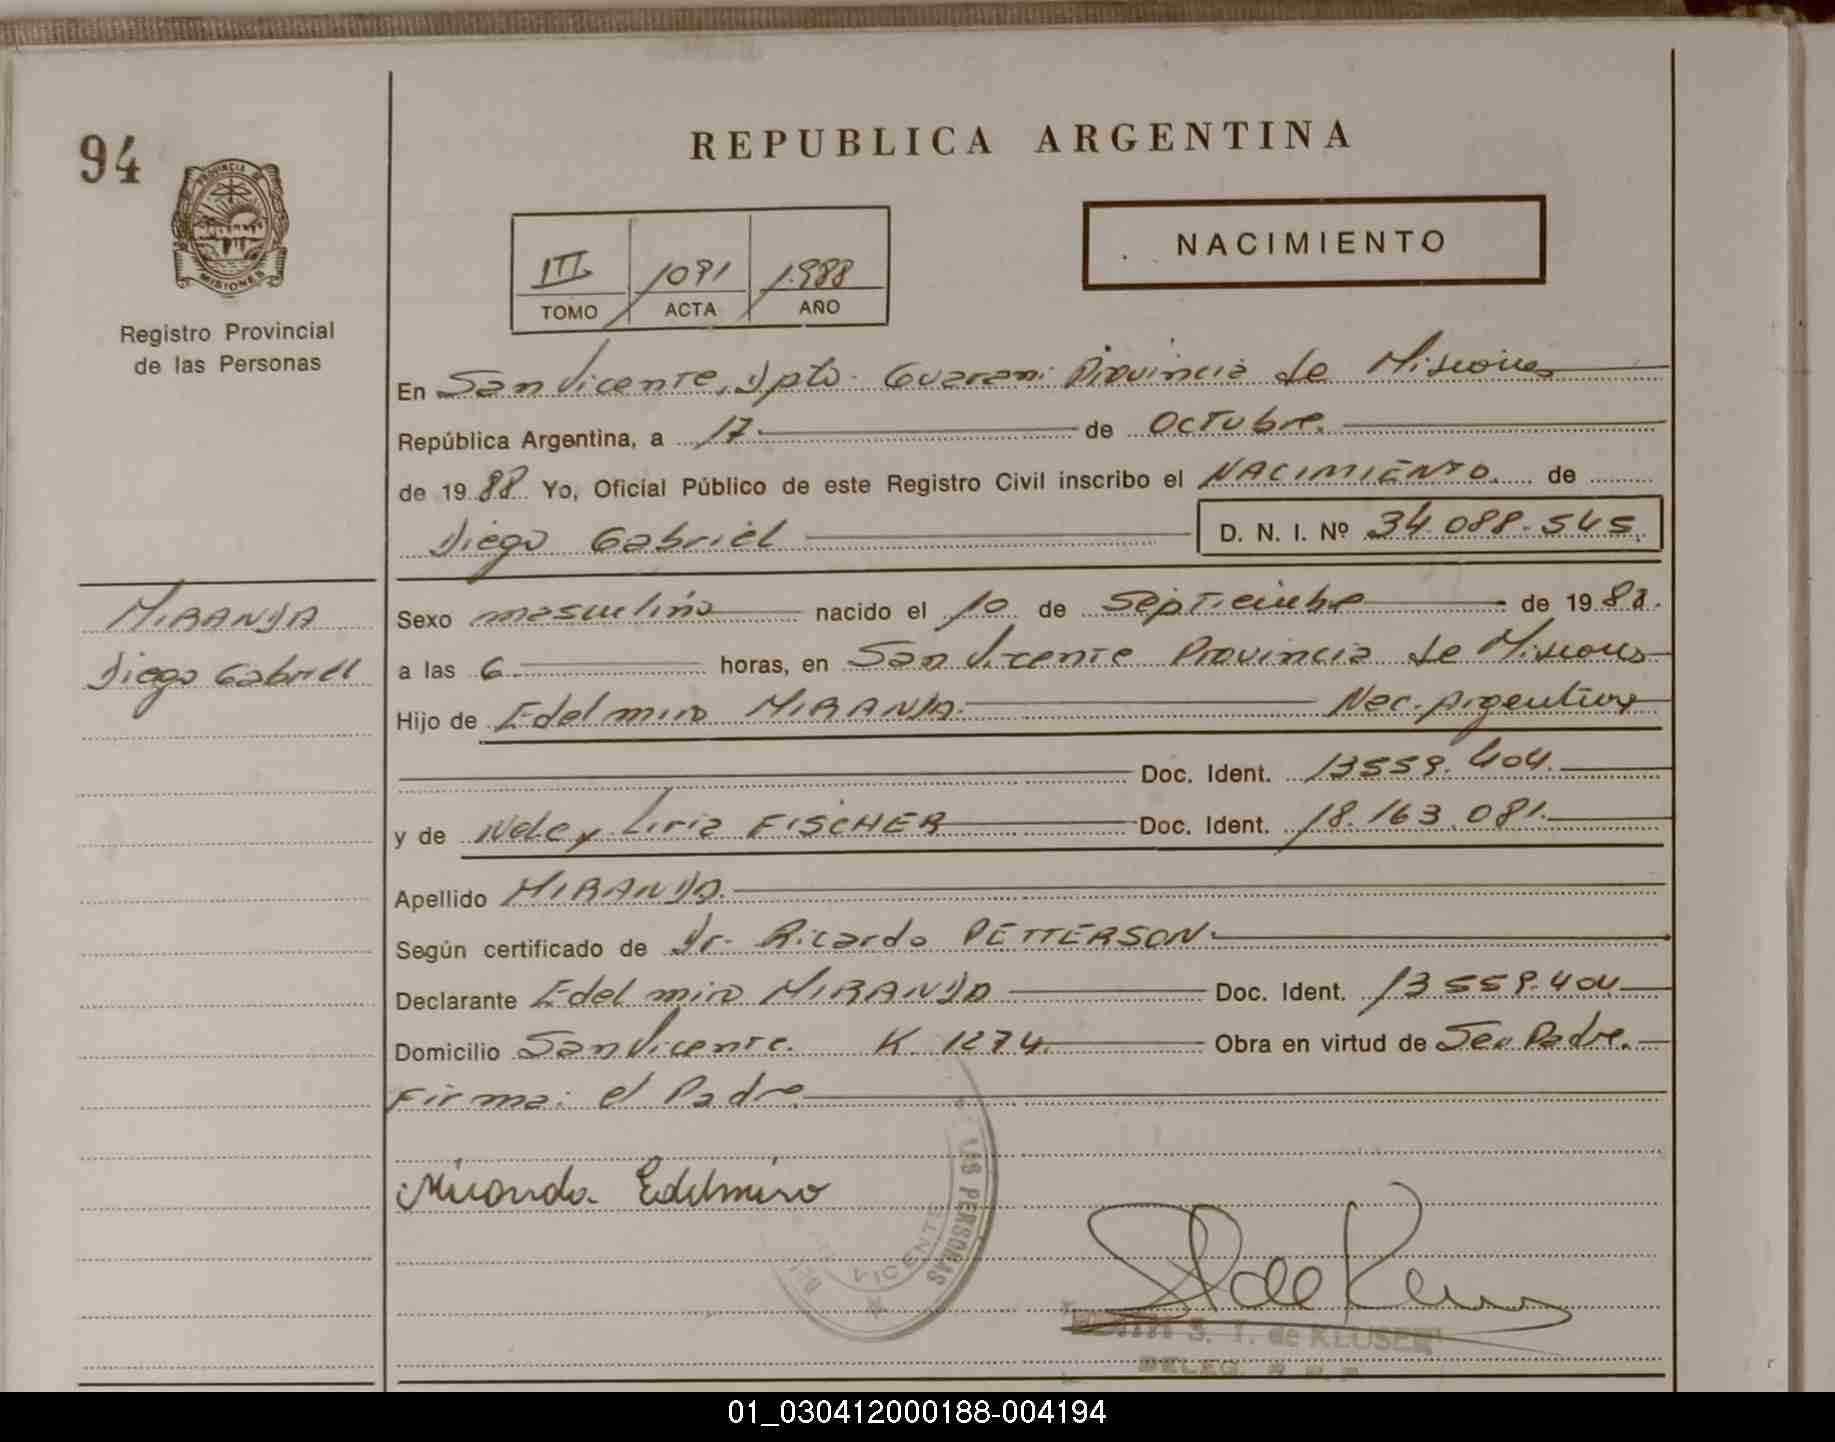 94
PROVINCIA DE
MISIONES
Registro Provincial
de las Personas
REPUBLICA ARGENTINA
III 1091 1.988
TOMO ACTA AÑO
NACIMIENTO
En San Vicente, Dpto. Guarani Provincia de Misiones
República Argentina, a 17 de Octubre.
de 19 88 Yo, Oficial Público de este Registro Civil inscribo el NACIMIENTO de
Diego Gabriel D. N. I. Nº 34.088.545.
MIRANDA
Diego Gabriel
Sexo masculino nacido el 10 de Septiembre de 19 88.
a las 6 horas, en San Vicente Provincia de Misiones
Hijo de Edelmiro MIRANDA. Nac. Argentino
Doc. Ident. 13559.404.
y de Nelcy Liria FISCHER Doc. Ident. 18.163.081.
Apellido MIRANDA.
Según certificado de Dr. Ricardo PETTERSON.
Declarante Edelmiro MIRANDA Doc. Ident. 13559.404
Domicilio San Vicente. K 1274. Obra en virtud de Ser Padre.
Firma: el Padre
Miranda Edelmiro
LAS PERSONAS
VICENTE
S. T. de KLUSER
DELEG. R. P. P.
01_030412000188-004194